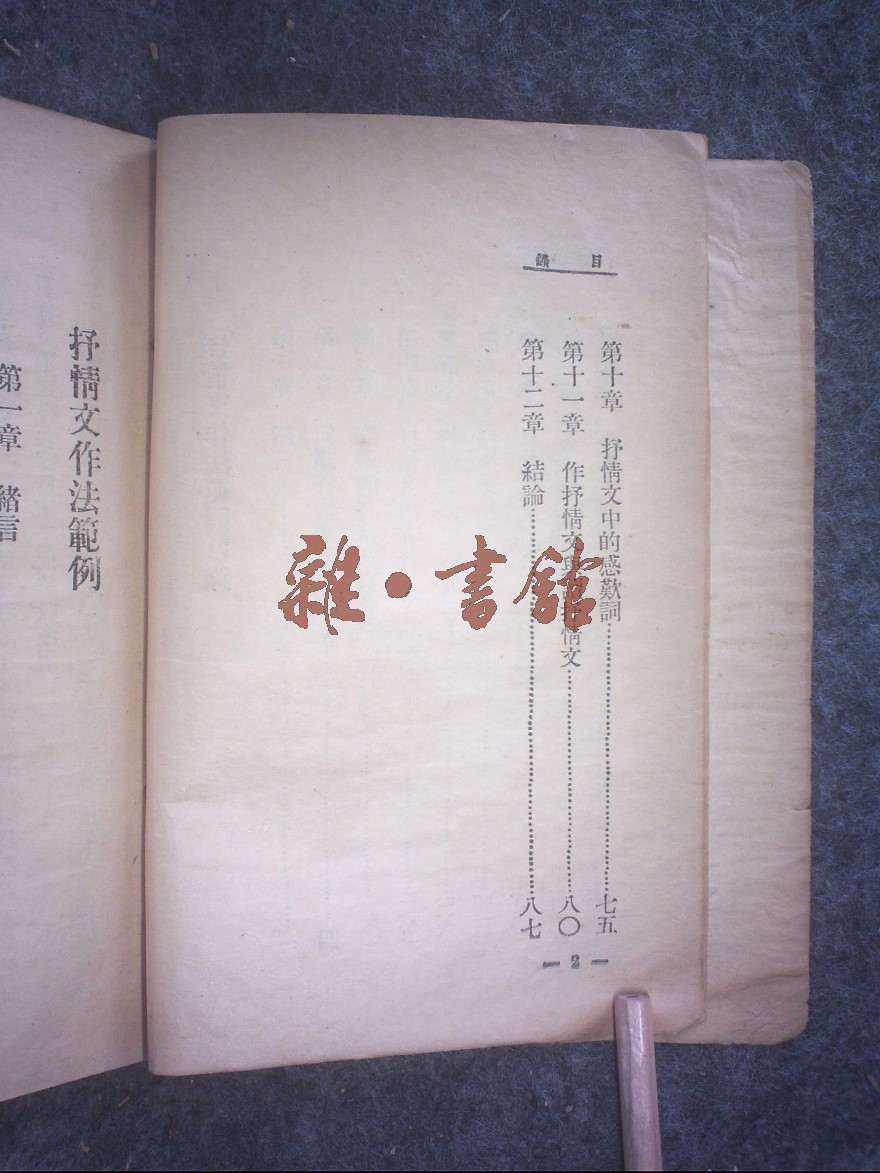 目錄
第十章 抒情文中的感歎詞 七五
第十一章 作抒情文與 抒情文 八〇
第十二章 結論 八七
— 2 —
抒情文作法範例
第一章 緒言
雜·書館